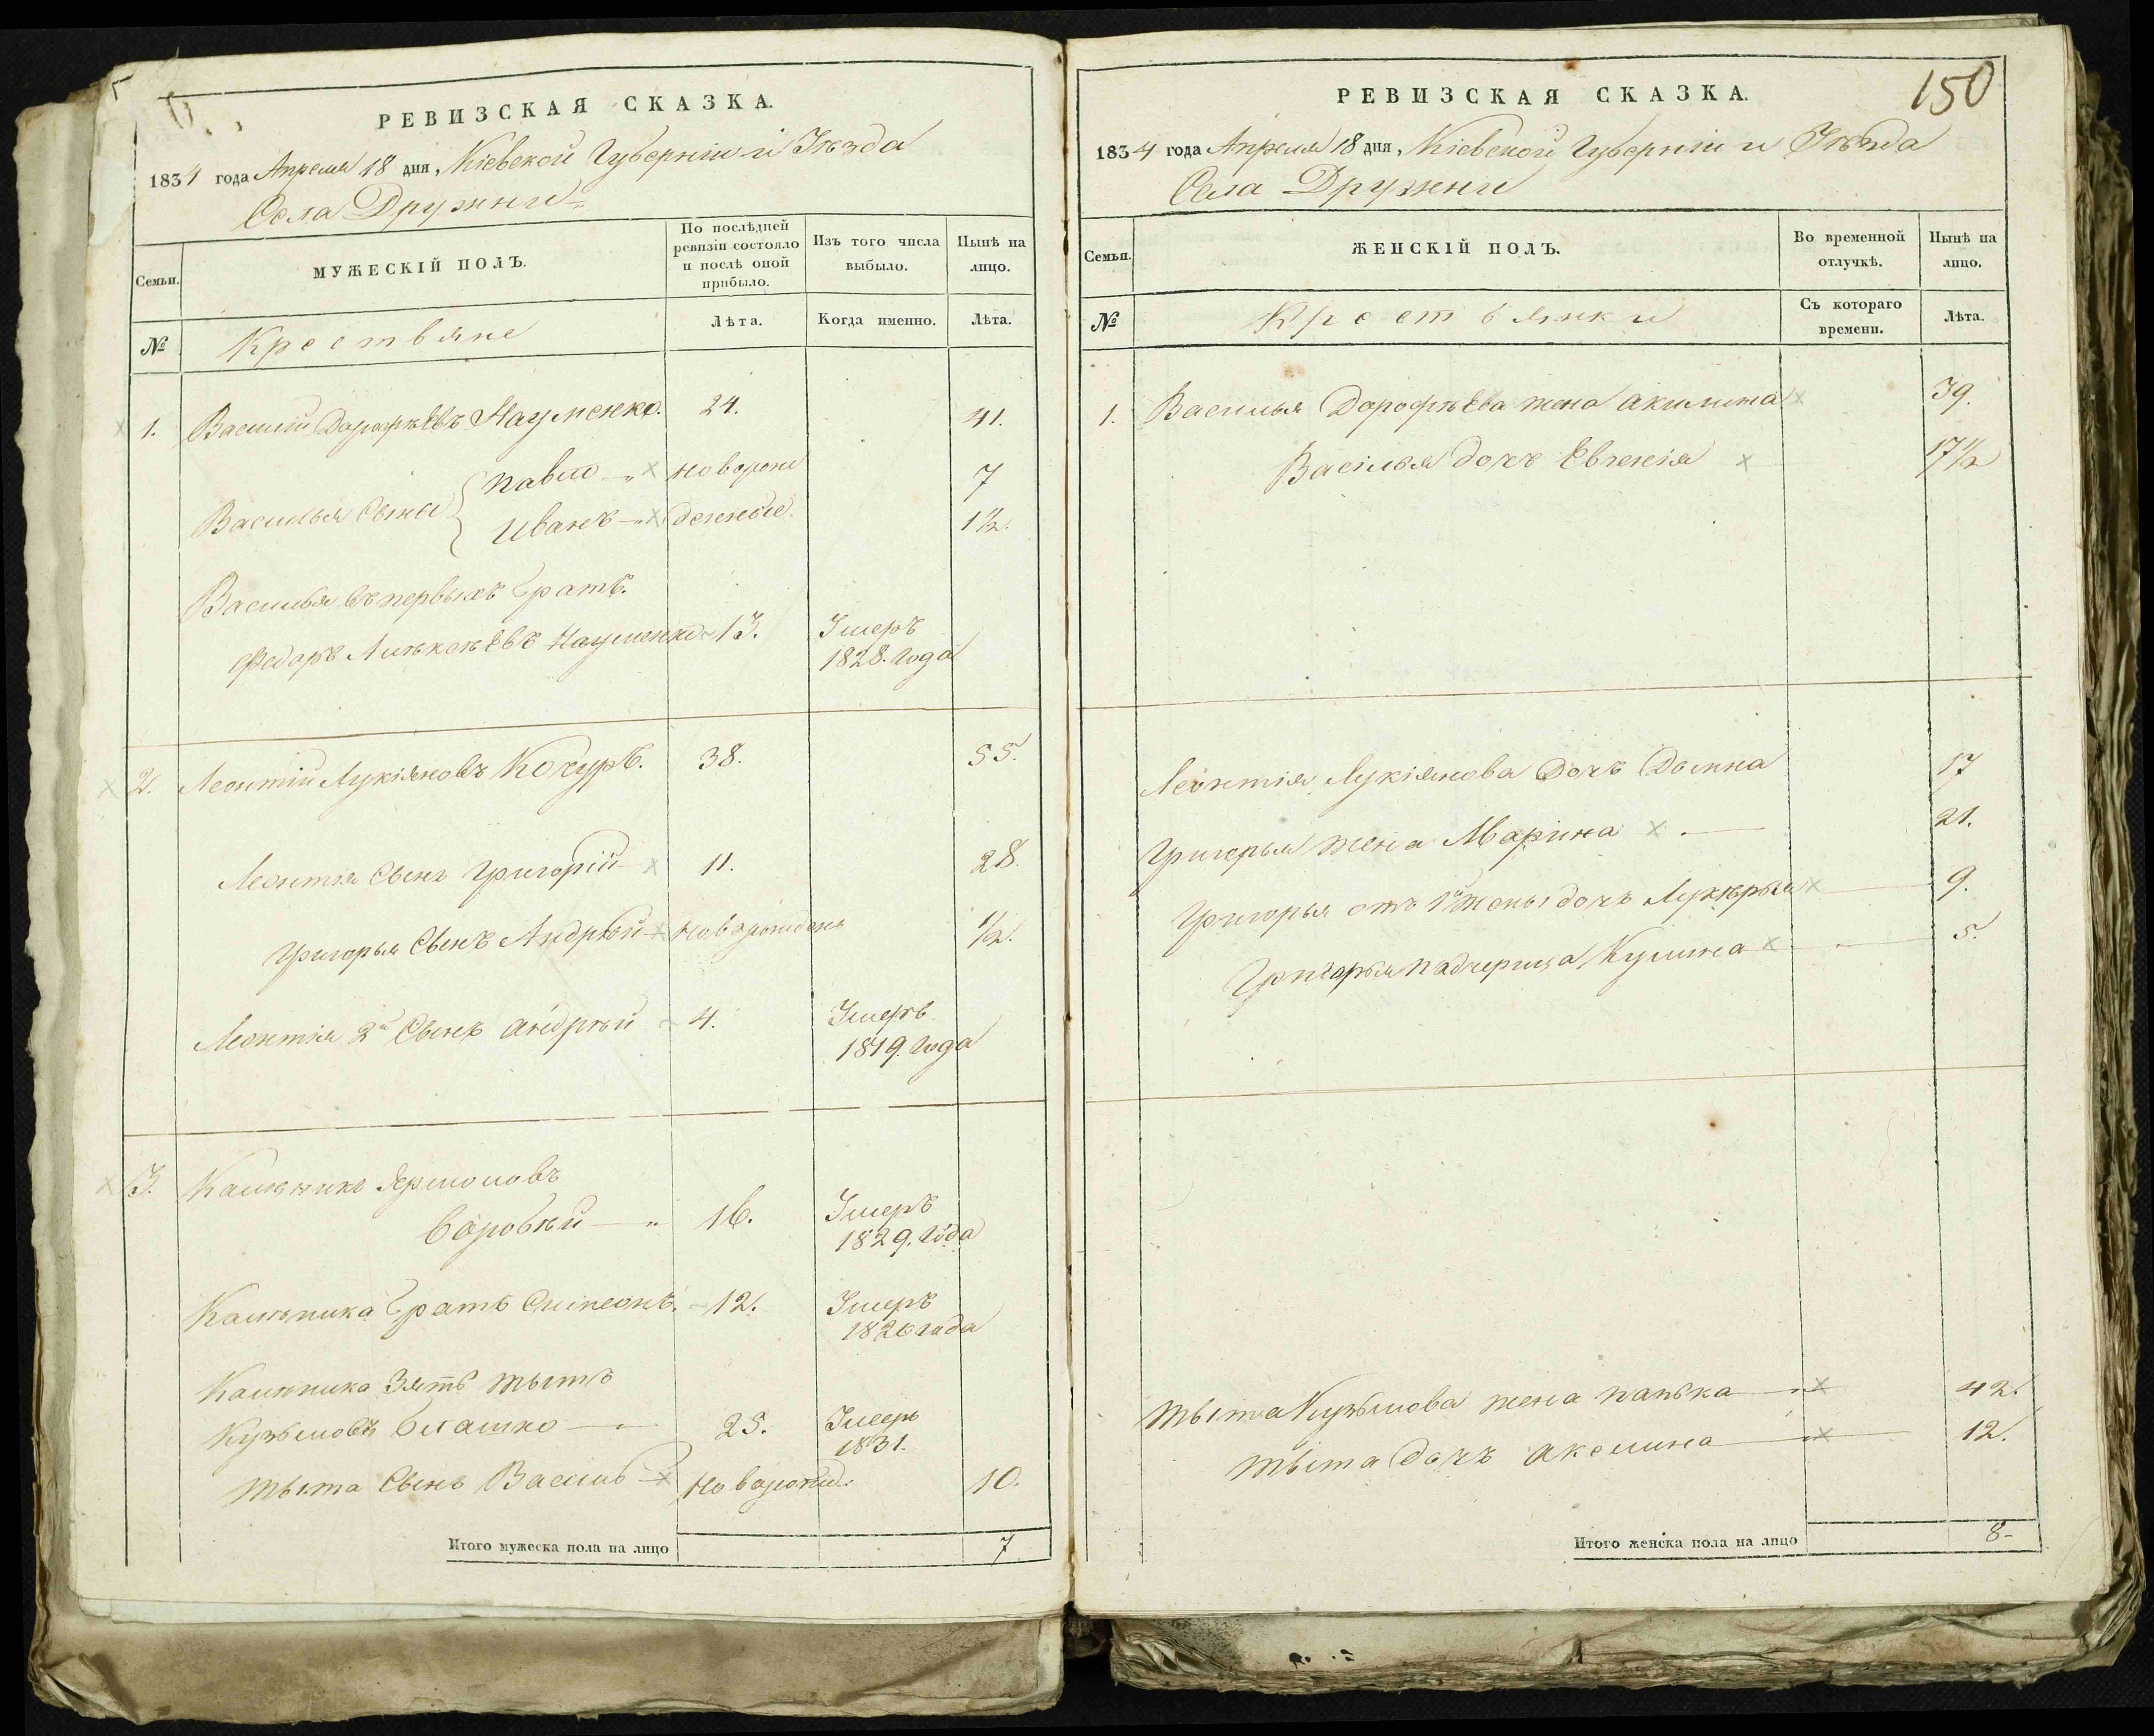 РЕВИЗСКАЯ СКАЗКА.
1834 года Апреля 18 дня, Кіевской Губерніи и Уѣзда
Села Дружни
Семьи.
МУЖЕСКІЙ ПОЛЪ.
По послѣдней ревизіи состояло и послѣ оной прибыло.
Изъ того числа выбыло.
Нынѣ на лицо.
№
Крестьяне
Лѣта.
Когда именно.
Лѣта.
1. Василій Дорофѣевъ Науменко. 24. 41.
Павло новорож 7
Василья Сыны
Иванъ денные. 1½.
Василья въ первыхъ братъ.
Федоръ Алѣксѣевъ Науменко 13. Умеръ
1828. года
2. Леонтій Лукіяновъ Кочуръ. 38. 55.
Леонтія Сынъ Григорій 11. 28.
Григорья Сынъ Андрѣй новорожденъ ½.
Леонтія 2й Сынъ андрѣй 4. Умеръ
1819. года
3. Калѣникъ Ярмоловъ
Воробѣй 16. Умеръ
1829. года
Калѣника братъ Симеонъ. 12. Умеръ
1826 года
Калѣника Зять Тытъ
Кузьмовъ Ілашко 25. Умеръ
1831.
Тыта Сынъ Василь новорожд: 10.
Итого мужеска пола на лицо 7
150
РЕВИЗСКАЯ СКАЗКА.
1834 года Апреля 18 дня, Кіевской Губерніи и Уѣзда
Села Дружни
Семьи.
ЖЕНСКІЙ ПОЛЪ.
Во временной отлучкѣ.
Нынѣ на лицо.
№
Крестьянки
Съ котораго времени.
Лѣта.
1. Василья Дорофѣева жена акилина 39.
Василья дочь Евгенія 17½
Леонтія Лукіянова Дочь Домна 17
Григорья жена Марина 21.
Григорья отъ 1й жены дочь Лукѣрья 9.
Григорья падчерица Кулина 5.
Тыта Кузьмова жена палька 42.
Тыта Дочь акелина 12.
Итого женска пола на лицо 8